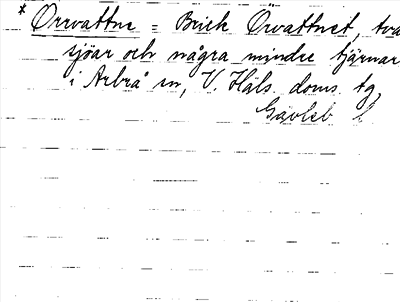 * Orrvattne = Brick Orvattnet, två
sjöar och några mindre tjärnar
i Arbrå sn, V. Häls. doms. tg,
Gävleb l.